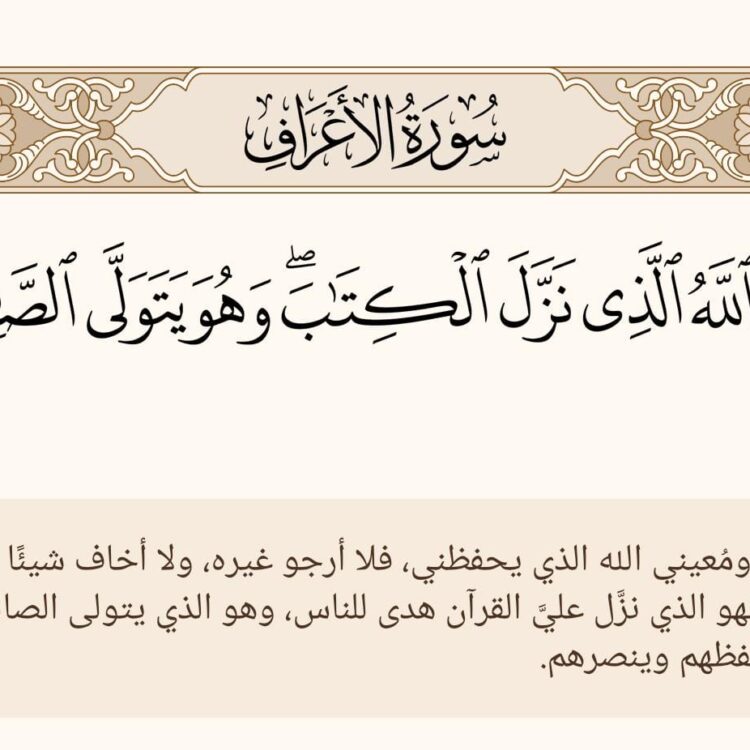 سُورَةُ الأَعْرَافِ
ٱللَّهُ ٱلَّذِى نَزَّلَ ٱلْكِتَٰبَ ۖ وَهُوَ يَتَوَلَّى
ومُعيني الله الذي يحفظني، فلا أرجو غيره، ولا أخاف شيئًا
الذي نزَّل عليَّ القرآن هدى للناس، وهو الذي يتولى
وينصرهم.